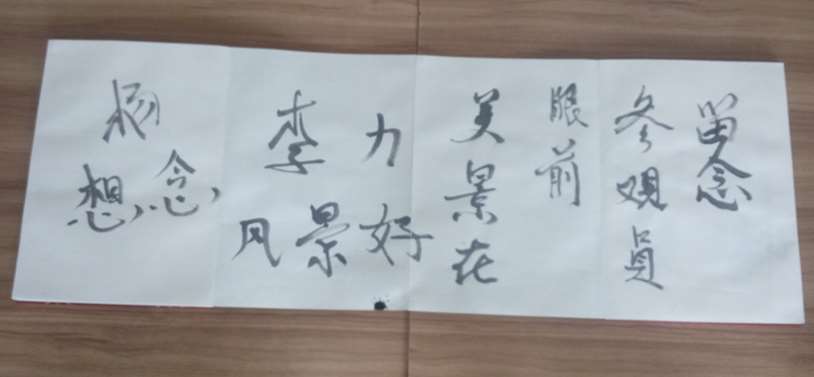 杨
想念
李力
风景好
美景在
眼前
冬观员
留念